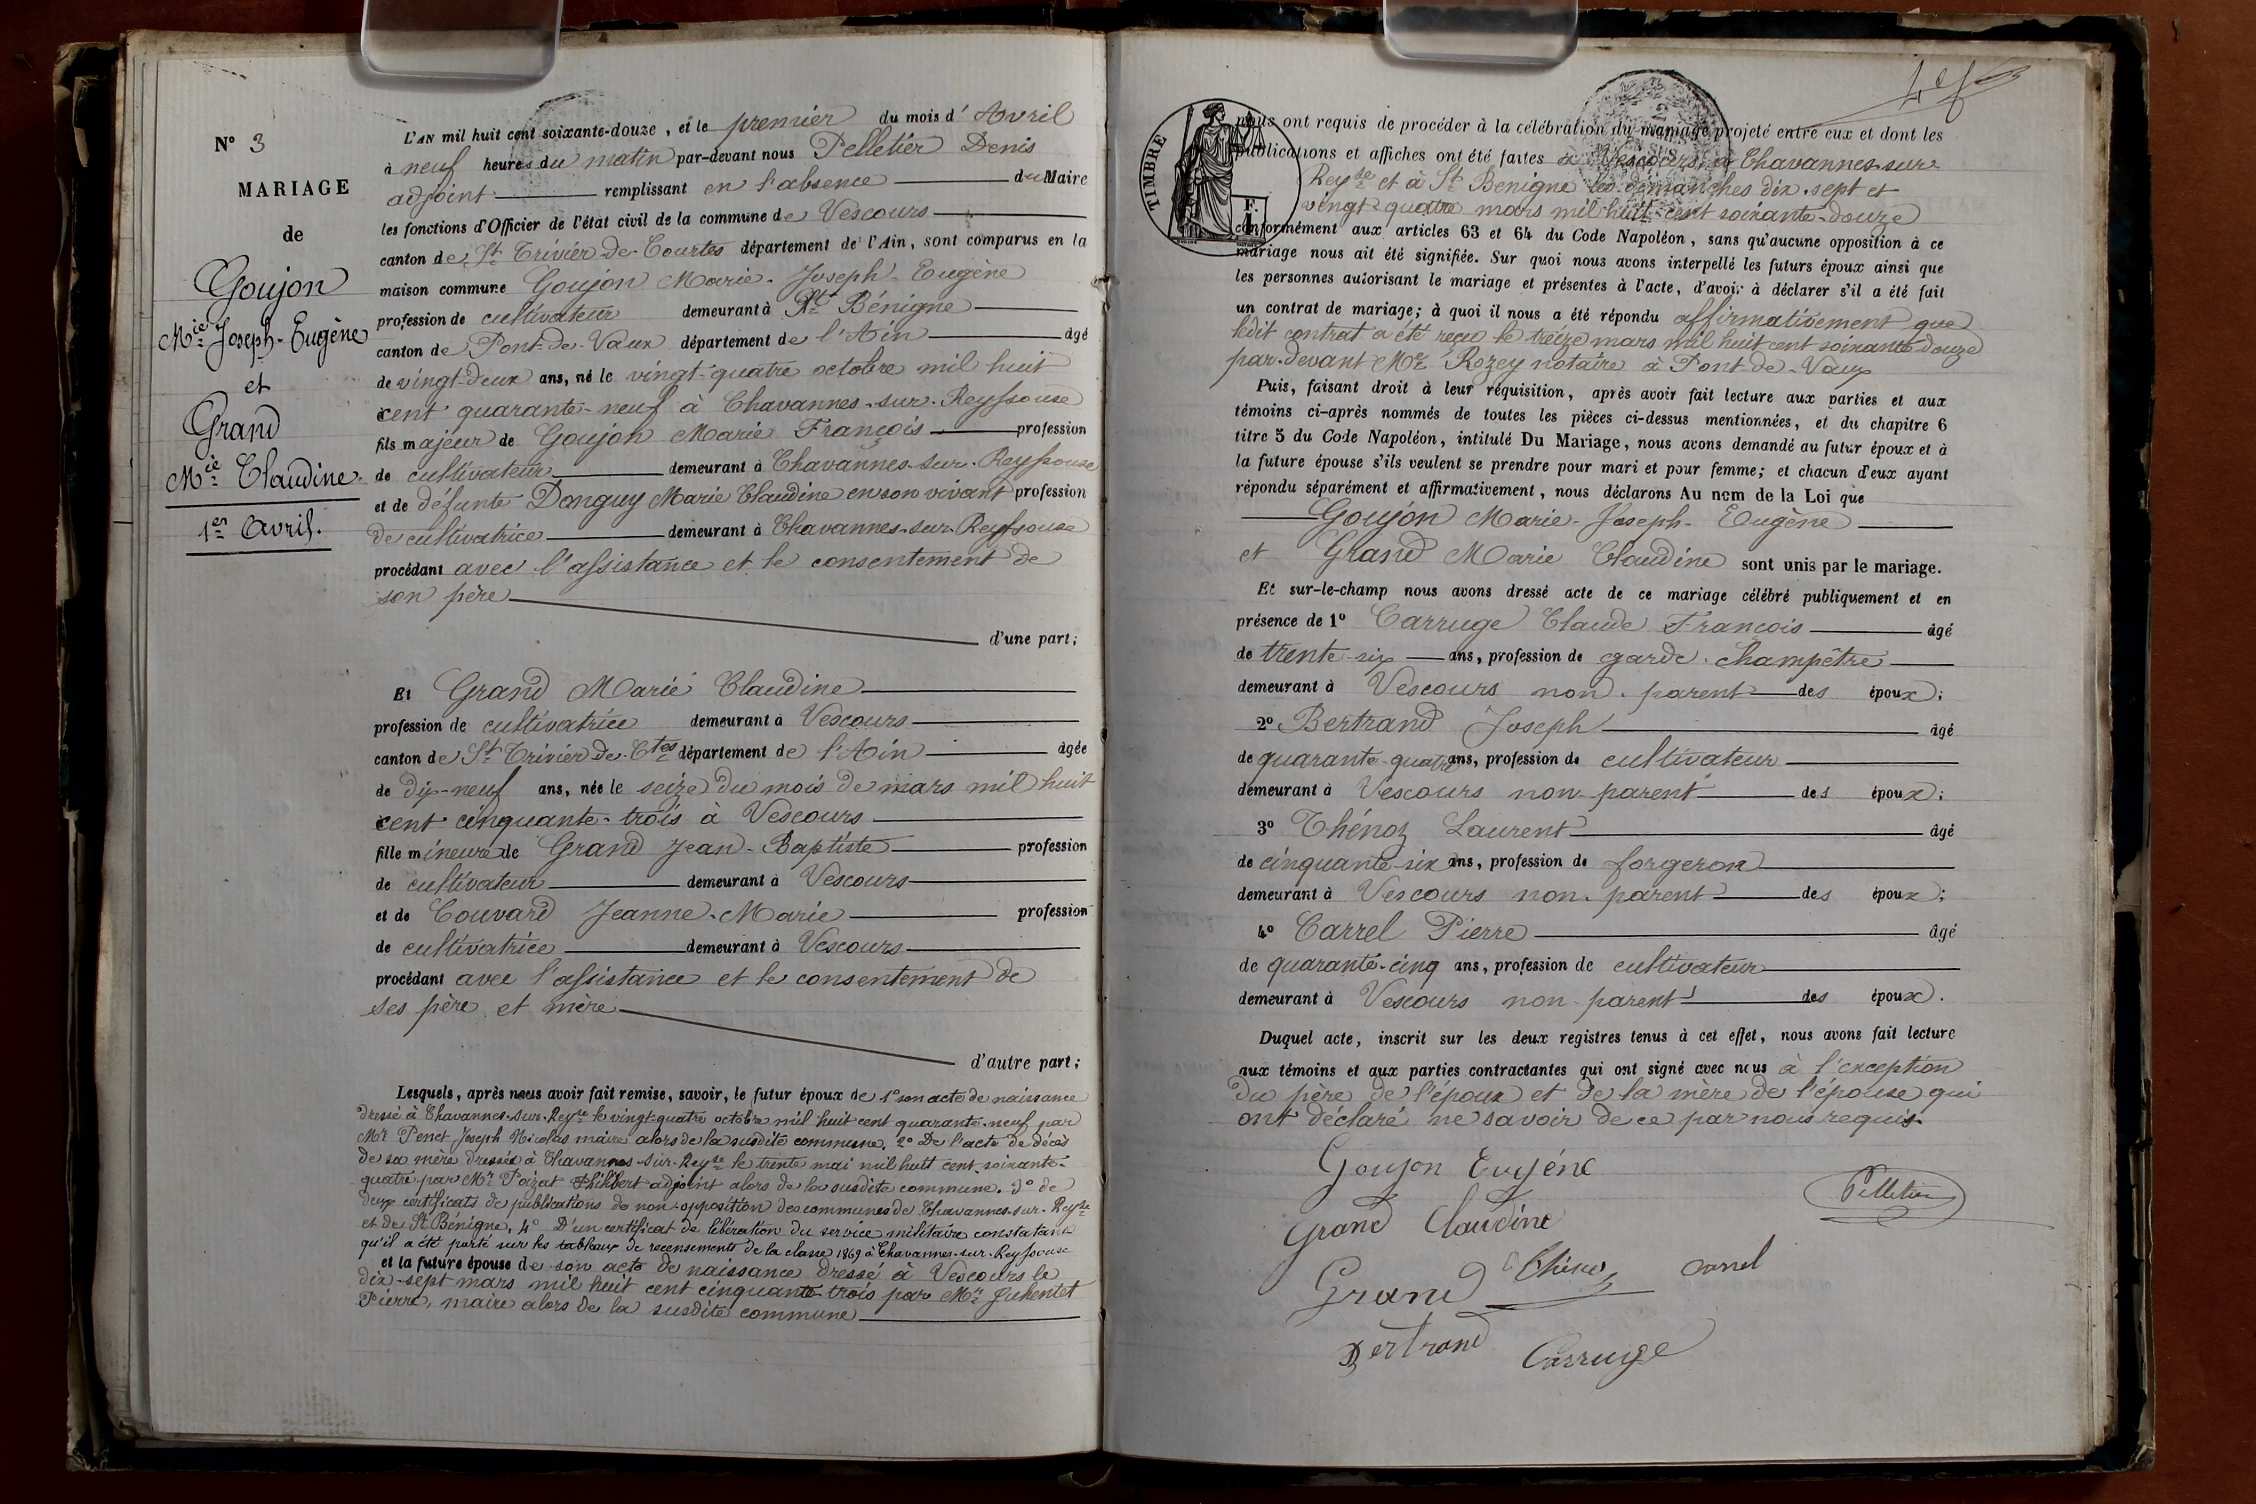 N° 3
MARIAGE
de
Goujon
Mie Joseph-Eugène
et
Grand
Mie Claudine
1er Avril.
L'AN mil huit cent soixante-douze, et le premier du mois d'Avril
à neuf heures du matin par-devant nous Pelletier Denis
adjoint remplissant en l'absence du Maire
les fonctions d'Officier de l'état civil de la commune de Vescours
canton de St Trivier-de-Courtes département de l'Ain, sont comparus en la
maison commune Goujon Marie-Joseph-Eugène
profession de cultivateur demeurant à St Bénigne
canton de Pont-de-Vaux département de l'Ain âgé
de vingt-deux ans, né le vingt-quatre octobre mil huit
cent quarante-neuf à Chavannes-sur-Reyssouse
fils majeur de Goujon Marie François profession
de cultivateur demeurant à Chavannes-sur-Reyssouse
et de défunte Danguy Marie Claudine en son vivant profession
de cultivatrice demeurant à Chavannes-sur-Reyssouse
procédant avec l'assistance et le consentement de
son père
d'une part;
Et Grand Marie Claudine
profession de cultivatrice demeurant à Vescours
canton de St Trivier-de-Ctes département de l'Ain âgée
de dix-neuf ans, née le seize du mois de mars mil huit
cent cinquante-trois à Vescours
fille mineure de Grand Jean-Baptiste profession
de cultivateur demeurant à Vescours
et de Couvard Jeanne-Marie profession
de cultivatrice demeurant à Vescours
procédant avec l'assistance et le consentement de
ses père et mère
d'autre part;
Lesquels, après nous avoir fait remise, savoir, le futur époux de 1° son acte de naissance
dressé à Chavannes-sur-Reyse le vingt-quatre octobre mil huit cent quarante-neuf par
Mr Penet Joseph Nicolas maire alors de la susdite commune. 2° De l'acte de décès
de sa mère dressé à Chavannes-sur-Reyse le trente mai mil huit cent soixante-
quatre par Mr Paizat Philibert adjoint alors de la susdite commune. 3° de
deux certificats de publications de non-opposition des communes de Chavannes-sur-Reyse
et de St Bénigne, 4° D'un certificat de libération du service militaire constatant
qu'il a été porté sur les tableaux de recensements de la classe 1869 à Chavannes-sur-Reyssouse
et la future épouse de son acte de naissance dressé à Vescours le
dix-sept mars mil huit cent cinquante-trois par Mr Juhentet
Pierre, maire alors de la susdite commune
TIMBRE
nous ont requis de procéder à la célébration du mariage projeté entre eux et dont les
publications et affiches ont été faites à Vescours, à Chavannes-sur-
Reyse et à St Benigne les dimanches dix-sept et
vingt-quatre mars mil huit cent soixante-douze
conformément aux articles 63 et 64 du Code Napoléon, sans qu'aucune opposition à ce
mariage nous ait été signifiée. Sur quoi nous avons interpellé les futurs époux ainsi que
les personnes autorisant le mariage et présentes à l'acte, d'avoir à déclarer s'il a été fait
un contrat de mariage; à quoi il nous a été répondu affirmativement que
ledit contrat a été reçu le treize mars mil huit cent soixante-douze
par-devant Mr Rozey notaire à Pont-de-Vaux
Puis, faisant droit à leur réquisition, après avoir fait lecture aux parties et aux
témoins ci-après nommés de toutes les pièces ci-dessus mentionnées, et du chapitre 6
titre 5 du Code Napoléon, intitulé Du Mariage, nous avons demandé au futur époux et à
la future épouse s'ils veulent se prendre pour mari et pour femme; et chacun d'eux ayant
répondu séparément et affirmativement, nous déclarons Au nom de la Loi que
Goujon Marie-Joseph-Eugène
et Grand Marie Claudine sont unis par le mariage.
Et sur-le-champ nous avons dressé acte de ce mariage célébré publiquement et en
présence de 1° Carruge Claude François âgé
de trente-six ans, profession de garde-champêtre
demeurant à Vescours non-parent des époux;
2° Bertrand Joseph âgé
de quarante-quatre ans, profession de cultivateur
demeurant à Vescours non-parent des époux;
3° Thénoz Laurent âgé
de cinquante-six ans, profession de forgeron
demeurant à Vescours non-parent des époux;
4° Carrel Pierre âgé
de quarante-cinq ans, profession de cultivateur
demeurant à Vescours non-parent des époux.
Duquel acte, inscrit sur les deux registres tenus à cet effet, nous avons fait lecture
aux témoins et aux parties contractantes qui ont signé avec nous à l'exception
du père de l'époux et de la mère de l'épouse qui
ont déclaré ne savoir de ce par nous requis.
Goujon Eugéne
Pelletier
Grand Claudine
Grand Thénoz Carrel
Bertrand Carruge